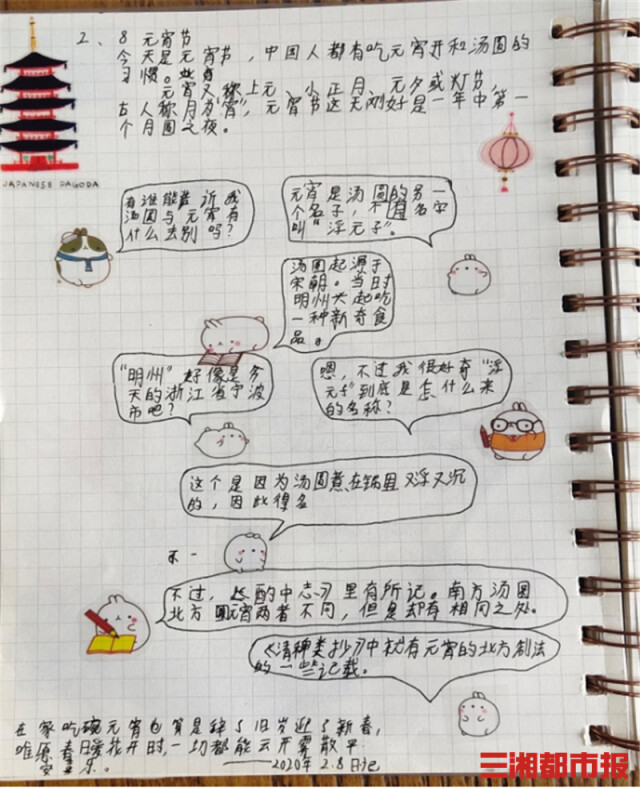 2、8 元宵节
今天是元宵节，中国人都有吃元宵并和汤圆的
习惯。
元宵又称上元、小正月、元夕或灯节，
古人称月为"宵"，元宵节这天刚好是一年中第一
个月圆之夜。
JAPANESE PAGODA
有谁能告诉我
汤圆与元宵有
什么去别吗？
元宵是汤圆的另一
个名子，不过名字
叫"浮元子"。
汤圆起源于
宋朝。当时
明州兴起吃
一种新奇食
品。
"明州"好像是今
天的浙江省宁波
市吧？
嗯，不过我很好奇"浮
元子"到底是怎什么来
的名称？
这个是因为汤圆煮在锅里又浮又沉
的，因此得名
不一
不过，《酌中志》里有所记。南方汤圆
北方元宵两者不同，但是却有相同之处。
《清稗类抄》中就有元宵的北方制法
的一些记载。
在家吃碗元宵也算是辞了旧岁迎了新春，
唯愿春日暖花开时，一切都能云开雾散平
安乐。
——2020年2.8日记
三湘都市报